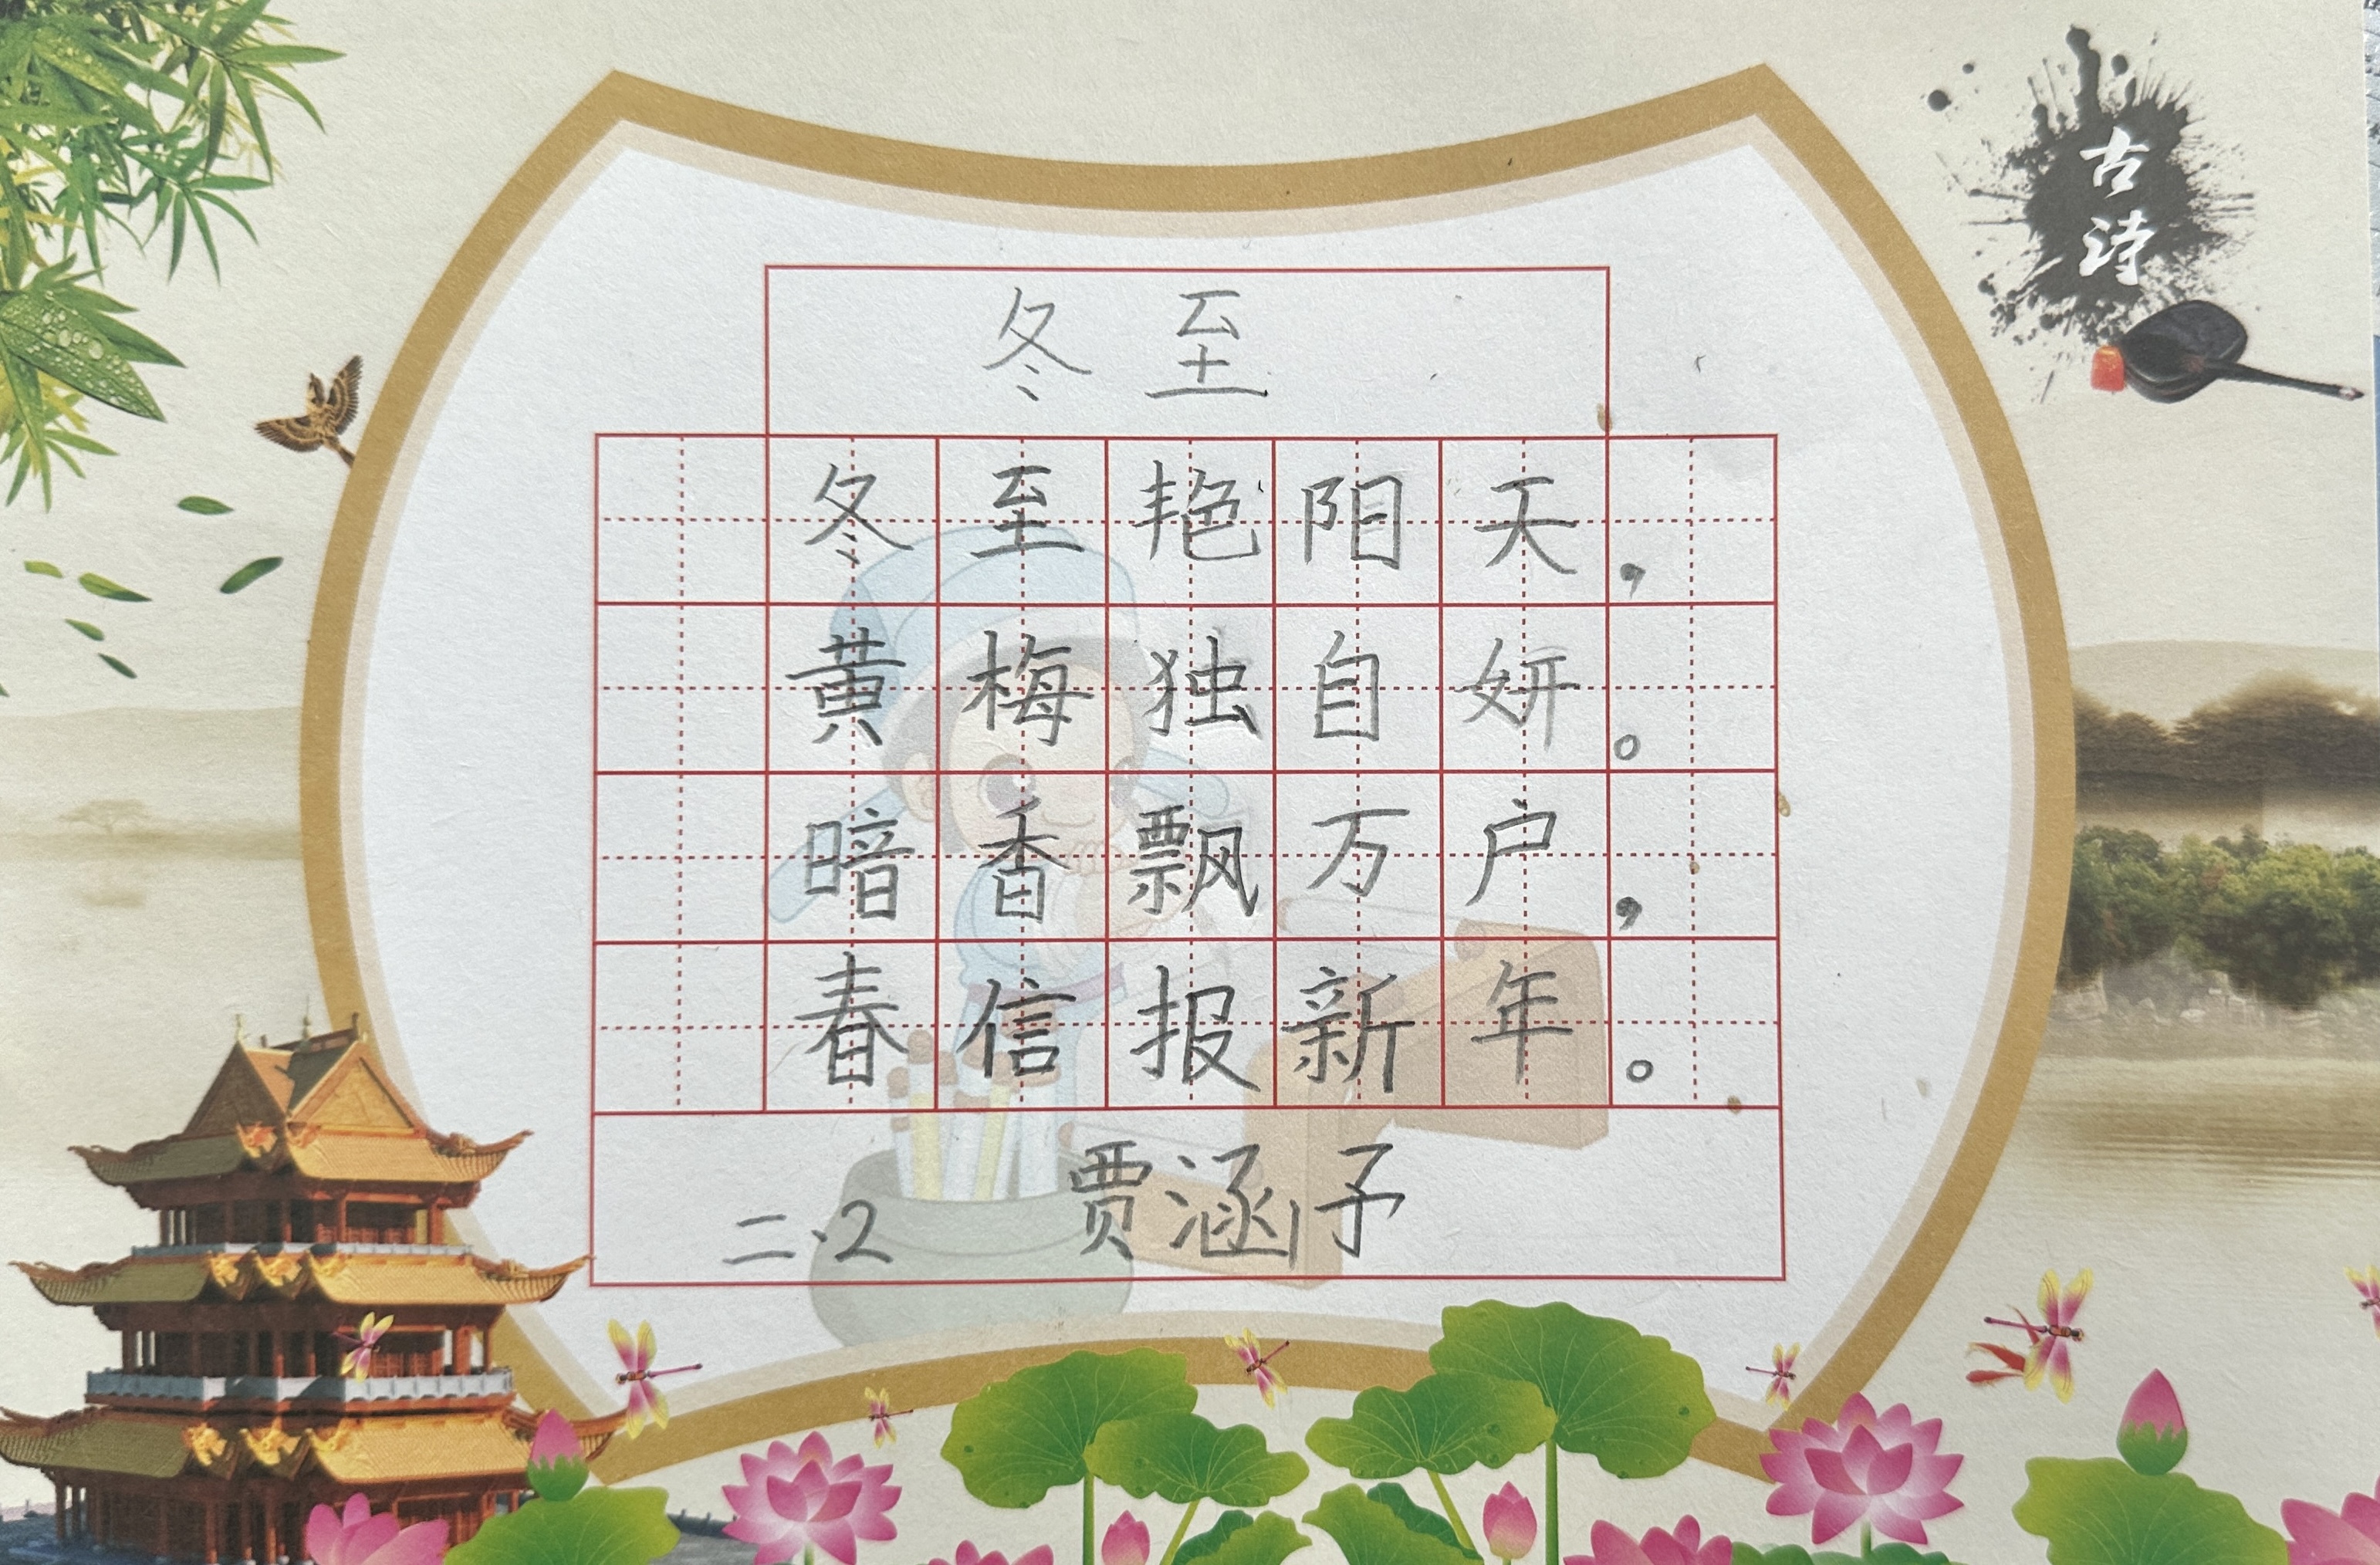 古诗
冬至
冬至艳阳天，
黄梅独自妍。
暗香飘万户，
春信报新年。
二·2 贾涵予